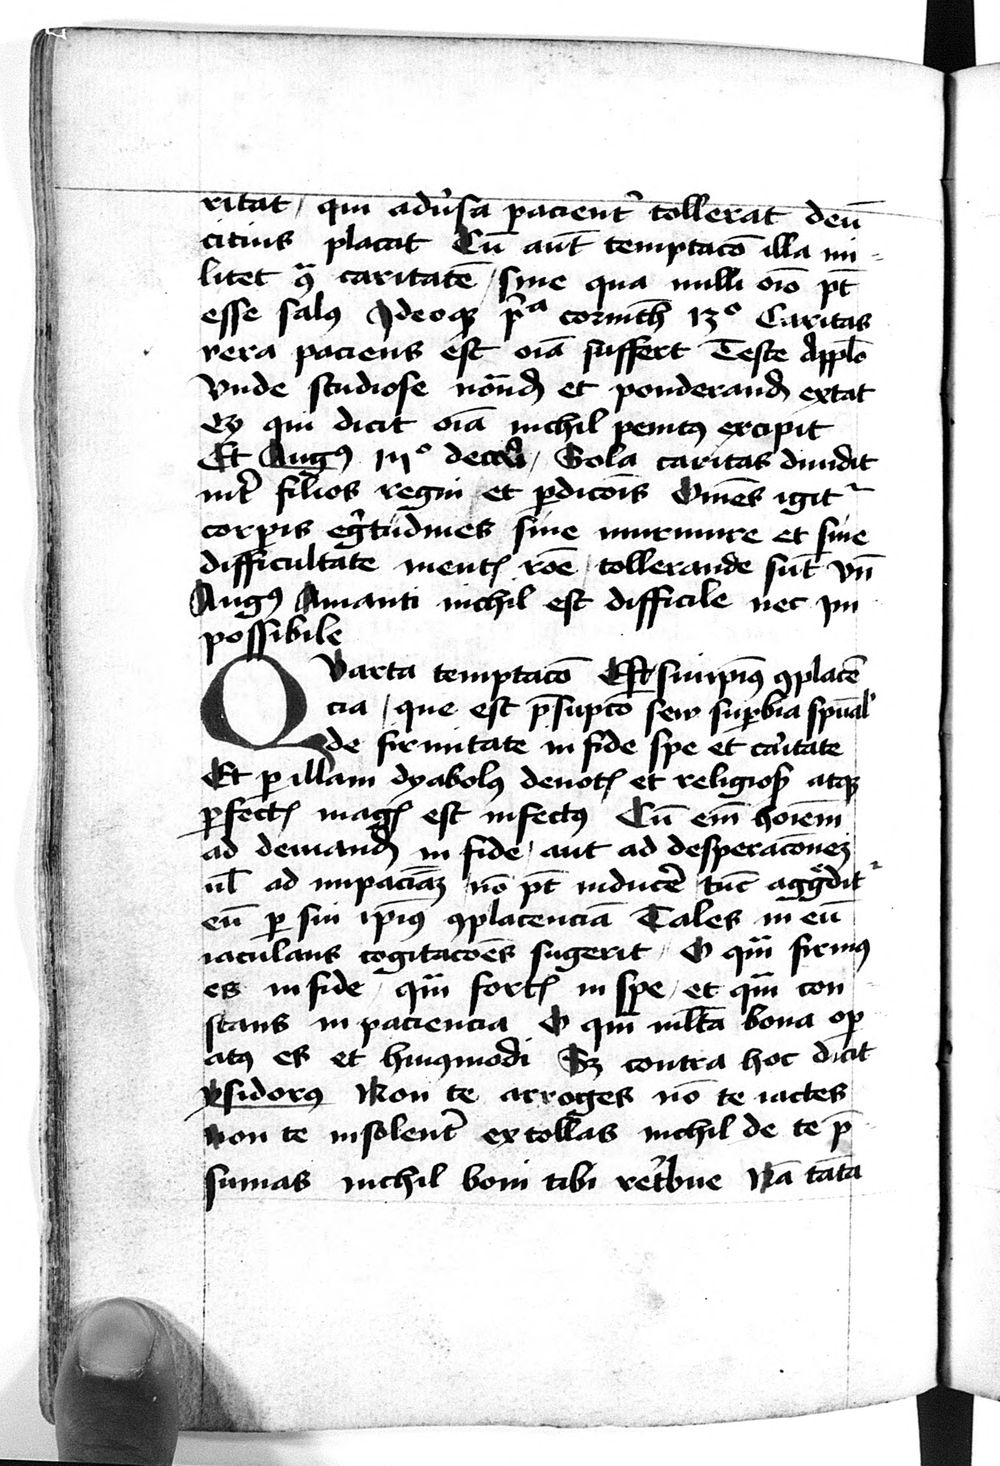 ritat / qui adu'sa pacient' tollerat deū
citius placat Cū aut̄ temptacō illa mi-
litet 9ͣ caritatē / sine qua nulli oīo pt̄
esse salus Ideoqꝫ pͥͣ corinth 13º Caritas
vera paciens est oīa suffert Teste Appl̄o
Vnde studiose nōnd̄ et ponderand̄ extat
Qꝫ qui dicit oīa nichil penitꝰ excipit
Et Augꝰ iijº / Sola caritas diuidit
int' filios regni et pͥdicōis Om̄es igit'
corpris eg'tudines sine murmure et sine
difficultate ment' rōe / tollerande sūt vn̄
Augꝰ Amanti nichil est difficile nec im
possibile
QVarta temptacō Est sui ip̄iꝰ 9placē
cia / que est p̄supcō sew sup̱bia sp̄ual'
de firmitate in fide spe et ca'itate
Et p̱ illam dyabolꝰ deuot' et religios' atqꝫ
p̱fect' mag' est infectꝰ Cū em̄ hoīem
ad deuiand̄ in fide / aut ad desperacōnez
ul̄ ad impaciāz nō pt̄ inducē' tūc agg̊dit'
eū p̱ sui ip̄iꝰ 9placenciā Tales in eū
iaculans cogitacōēs sugerit / O qm̄ firmꝰ
es in fide / qm̄ fort' in spe / et qm̄ con
stans in paciencia O qm̄ ml̄ta bona op̱
atꝰ es et huiꝰmodi Sꝫ contra hoc dicit
ysidorꝰ Non te arroges nō te iactes
Non te insolent' extollas nichil de te p̄
sumas nichil boni tibi ret'bue Nā tāta